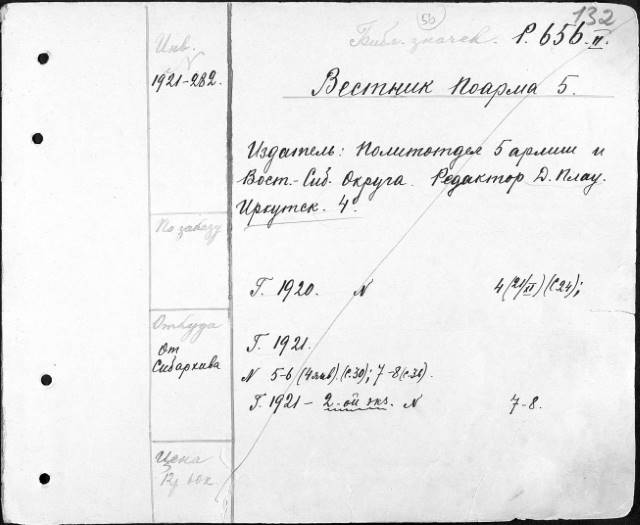 50
132
Библ. значек. Р. 656. II.
Инв.
1921-282.
Вестник Поарма 5.
Издатель: Политотдел 5 армии и
Вост.-Сиб. Округа. Редактор Д. Плау.
Иркутск. 4°.
По заказу
Г. 1920. N 4 (21/XI) (с24);
Откуда
От
Сибархива
Г. 1921.
N 5-6 (4 янв). (с.30); 7-8 (с.31).
Г. 1921 - 2-ой экз. N 7-8.
Цена